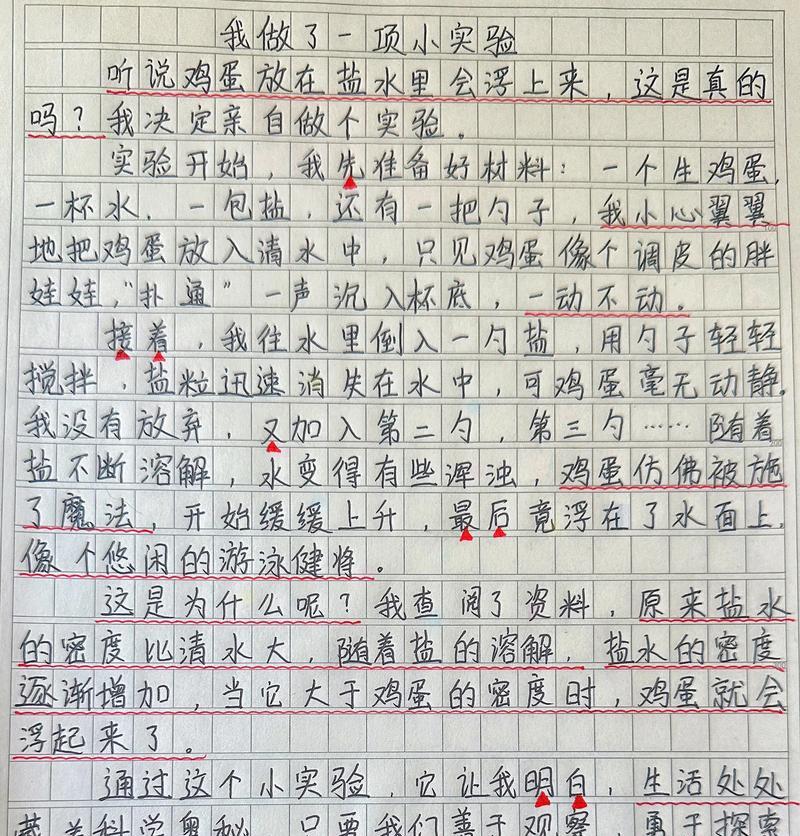 我做了一项小实验
听说鸡蛋放在盐水里会浮上来，这是真的
吗？我决定亲自做个实验。
实验开始，我先准备好材料：一个生鸡蛋，
一杯水，一包盐，还有一把勺子，我小心翼翼
地把鸡蛋放入清水中，只见鸡蛋像个调皮的胖
娃娃，“扑通”一声沉入杯底，一动不动。
接着，我往水里倒入一勺盐，用勺子轻轻
搅拌，盐粒迅速消失在水中，可鸡蛋毫无动静。
我没有放弃，又加入第二勺，第三勺……随着
盐不断溶解，水变得有些浑浊，鸡蛋仿佛被施
了魔法，开始缓缓上升，最后竟浮在了水面上，
像个悠闲的游泳健将。
这是为什么呢？我查阅了资料，原来盐水
的密度比清水大，随着盐的溶解，盐水的密度
逐渐增加，当它大于鸡蛋的密度时，鸡蛋就会
浮起来了。
通过这个小实验，它让我明白，生活处处
藏着科学奥秘，只要我们善于观察，勇于探索